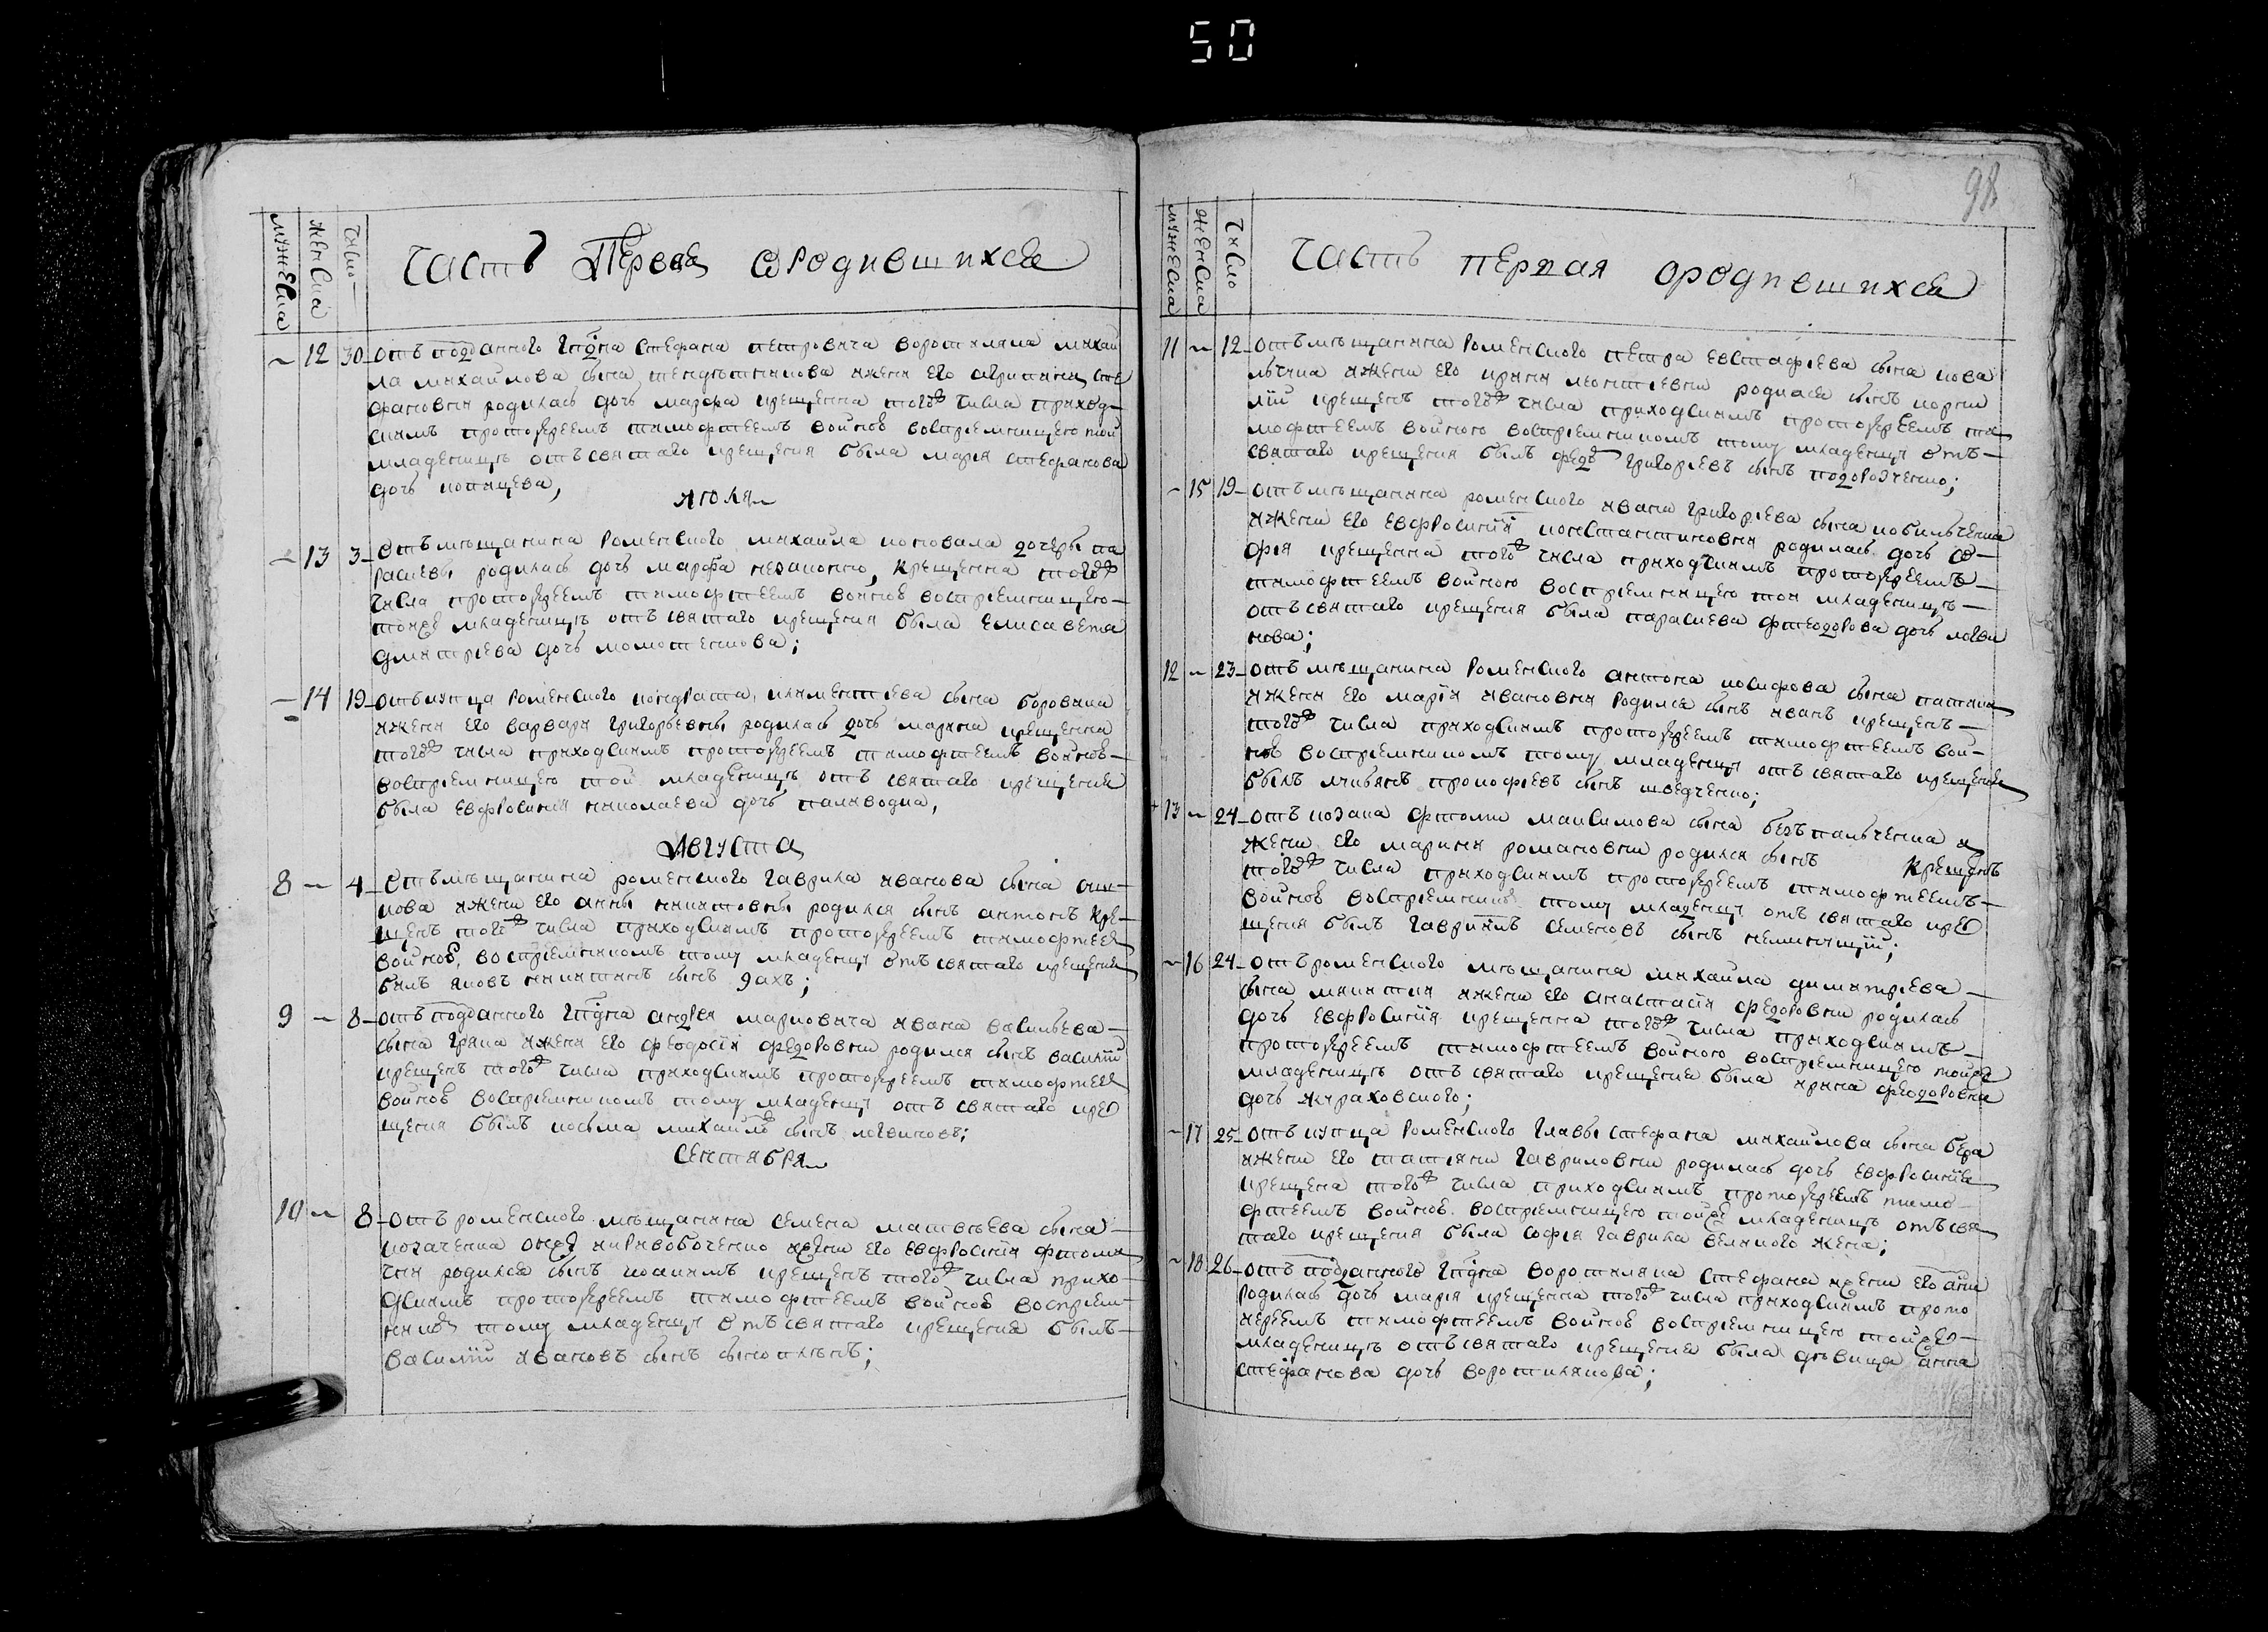 50
98
мужеска
женска
число
Часть Первая ѡ родившихся
12 30 отъ подданного гпдна Стефана петровича воротиляка михаи
ла михаилова сына жени его агрипини сте
фановни родилась дочь марфа крещенна того числа приход
скимъ протоіереемъ тимофтеемъ войновъ воспріемницею той
младеницѣ отъ святаго крещения была марія стефанова
дочь
июля
13 3 Отъ мѣщанина роменского михаила коновала дочери па
раскевы родилась дочь марфа незаконно, крещенна того
числа протоіереемъ тимофтеемъ воиновъ воспріемницею
тоей младеницѣ отъ святаго крещения была елисавета
дмитріева дочь
14 19 отъ купца роменского кондрата климентіева сына боровика
и жени его варвари григорьевны родилась дочь марина крещенна
того числа приходскимъ протоіереемъ тимофтеемъ воиновъ
воспріемницею той младеницѣ отъ святаго крещения
была евфросиния николаева дочь паливодиа,
Августа
8 4 Отъ мѣщанина роменского гаврила иванова сына
нова и жени его анны никитовны родился сынъ антонъ кре
щенъ того числа приходскимъ протоіереемъ тимофтеем
войновъ, воспріемникомъ тому младенцу отъ святаго крещения
билъ яковъ никитинъ сынъ
9 8 отъ подданного гпдна андрея марковича ивана васильева
сына грица и жени его феодосіи федоровни родился сынъ василій
крещенъ того числа приходскимъ протоіереемъ тимофтеем
войновъ воспріемникомъ тому младенцу отъ святаго кре
щения былъ косьма михаиловъ сынъ логвиновъ;
Сентября
10 8 отъ роменского мѣщанина Семена матвѣева сына
жени его евфросиния фтоми
чни родился сынъ иоакимъ крещенъ того числа прихо
дскимъ протоіереемъ тимофтеемъ войновъ воспріем
никъ тому младенцу отъ святаго крещения былъ
василій ивановъ сынъ
мужеска
женска
число
Часть первая о родившихся
11 12 отъ мѣщанина роменского петра евстафіева сына кова
льчика и жени его ирини леонтіевни родился сынъ корни
лій крещенъ того числа приходскимъ протоіереемъ ти
мофтеемъ войною воспріемникомъ тому младенцу отъ
святаго крещения былъ федоръ григоріевъ сынъ
15 19 отъ мѣщанина роменского ивана григоріева сына кобильченка
и жени его евфросиніи константиновни родилась дочь со
фія крещенна того числа приходскимъ протоіереемъ
тимофтеемъ войною воспріемницею той младеницѣ
отъ святаго крещения была параскева фтеодорова дочь логви
нова;
12 23 отъ мѣщанина роменского антона иосифова сына
и жени его маріи ивановни родился сынъ иванъ крещенъ
того числа приходскимъ протоіереемъ тимофтеемъ вои
новъ воспріемникомъ тому младенцу отъ святаго крещения
былъ прокофіевъ сынъ шведченко;
13 24 отъ козака фтоми максимова сына безпальченка и
жени его марини романовни родился сынъ крещенъ
того числа приходскимъ протоіереемъ тимофтеемъ
войновъ воспріемникъ тому младенцу отъ святаго кре
щения былъ гавріилъ семеновъ сынъ
16 24 отъ роменского мѣщанина михаила димитріева
сына и жени его анастасія федоровни родилась
дочь евфросинія крещенна того числа приходскимъ
протоіереемъ тимофтеемъ войною воспріемницею тойже
младеницѣ отъ святаго крещения была ирина феодоровна
дочь жураховского;
17 25 отъ купца роменского главы стефана михаилова сына
и жени его татияни гавриловни родилась дочь евфросиния
крещена того числа приходскимъ протоіереемъ тимо
фтеемъ войновъ воспріемницею тойже младеницѣ отъ свя
таго крещения была софія гаврила великого жена;
18 26 отъ подданного гпдна воротиляка стефана и жени его анни
родилась дочь марія крещенна того числа приходскимъ прото
иереемъ тимофтеемъ войновъ воспріемницею тойже
младеницѣ отъ святаго крещения была дѣвица анна
стефанова дочь воротилякова;